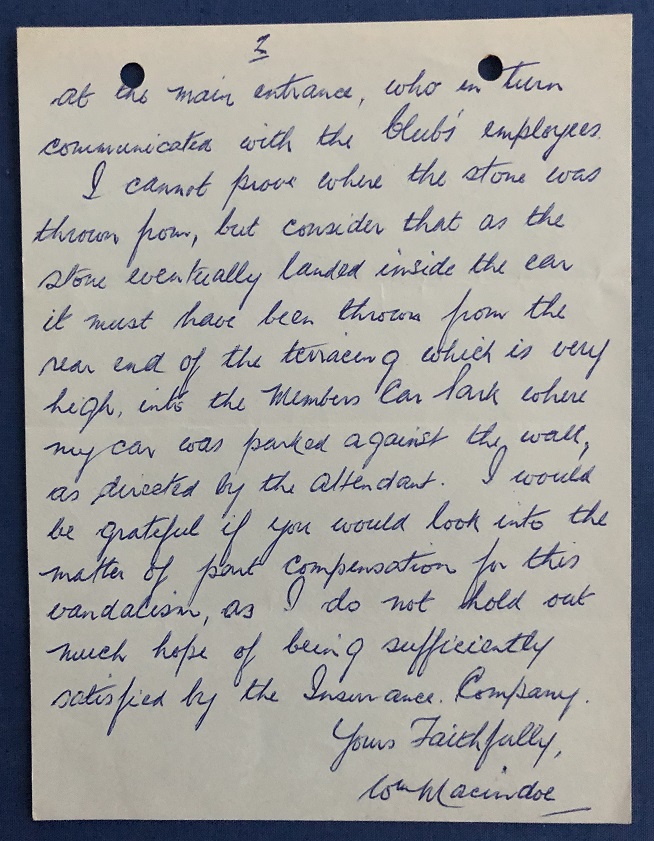 2
at the main entrance, who in turn
communicated with the Clubs' employees.
I cannot prove where the stone was
thrown from, but consider that as the
stone eventually landed inside the car
it must have been thrown from the
rear end of the terracing which is very
high, into the Members Car Park where
my car was parked against the wall,
as directed by the attendant. I would
be grateful if you would look into the
matter of part compensation for this
vandalism, as I do not hold out
much hope of being sufficiently
satisfied by the Insurance. Company.
Yours Faithfully,
Wm Macindoe